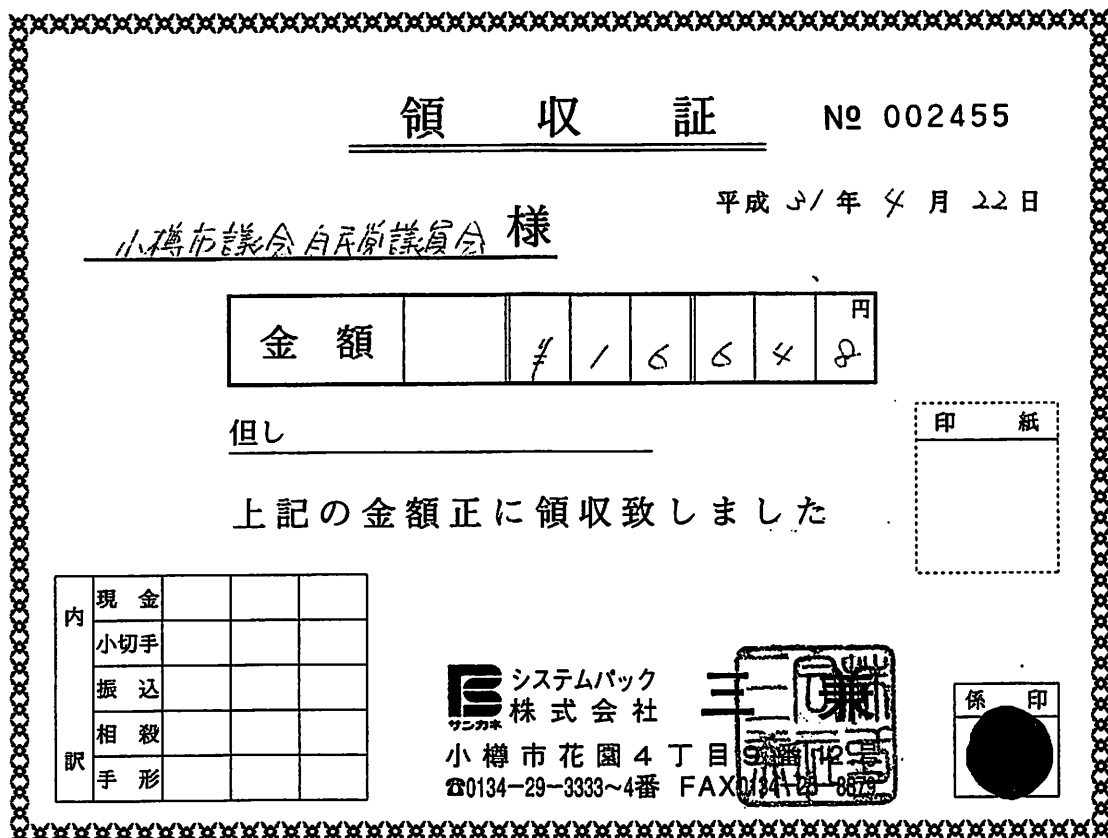 領収証 № 002455
平成 31 年 4 月 22 日
小樽市議会自民党議員会 様
金額 ¥166648 円
但し
印紙
上記の金額正に領収致しました
内訳
現金
小切手
振込
相殺
手形
サンカネ
システムパック
株式会社 三兼
小樽市花園4丁目9番12号
☎0134-29-3333~4番 FAX0134-
係印